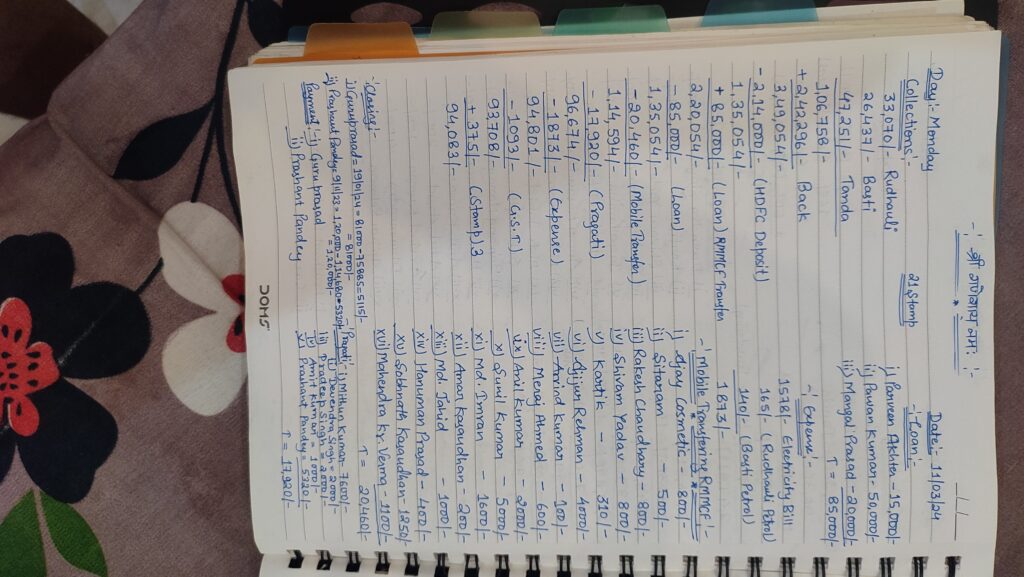 -: श्री गणेशाय नमः :-
Day:- Monday
Date:- 11/03/24
Collections:-
21 Stamb
-: Loan :-
33,070/- Rudhauli
i) Parveen Akhtar - 15,000/-
26,437/- Basti
ii) Pawan Kumar - 50,000/-
47,251/- Tanda
iii) Mangal Prasad - 20,000/-
T = 85,000/-
1,06,758/-
+ 2,42,296/- Back
-: Expense :-
3,49,054/-
1578/- Electricity Bill
- 2,14,000/- (HDFC Deposit)
165/- (Rudhauli Petrol)
1,35,054/-
140/- (Basti Petrol)
+ 85,000/- (Loan) RMMCF Transfer
1873/-
2,20,054/-
-: Mobile Transfering RMMCF :-
- 85,000/- (Loan)
i) Ajay Cosmetic - 800/-
1,35,054/-
ii) Sitaram - 500/-
- 20,460/- (Mobile Transfer)
iii) Rakesh Chaudhary - 800/-
1,14,594/-
iv) Shivam Yadav - 800/-
- 17,920/- (Pragati)
v) Kartik - 310/-
96,674/-
vi) Ajijur Rehman - 4000/-
- 1873/- (Expense)
vii) Arvind Kumar - 100/-
94,801/-
viii) Meraj Ahmed - 600/-
- 1093/- (G.S.T)
ix) Anil Kumar - 2000/-
93,708/-
x) Sunil Kumar - 5000/-
+ 375/- (Stamb) 3
xi) Md. Imran - 1600/-
94,083/-
xii) Amar Kasaudhan - 200/-
xiii) Md. Jahid - 1000/-
xiv) Hanuman Prasad - 400/-
xv) Sabhnath Kasaudhan - 1250/-
xvi) Mahendra Kr. Verma - 1100/-
T = 20,460/-
-: Closing :-
i) Guruprasad = 19/01/24 = 81000 - 75885 = 5115/-
= 81000/-
Pragati:- i) Mithun Kumar - 7600/-
ii) Prashant Pandey = 9/11/23 = 1,20,000 - 1,14,680 = 5320/-
= 1,20,000/-
ii) Devendra Singh = 2000/-
iii) Pradeep Singh = 2000/-
Payment:- i) Guru prasad
iv) Amit Kumar = 1000/-
ii) Prashant Pandey
v) Prashant Pandey = 5320/-
T = 17,920/-
JOMS